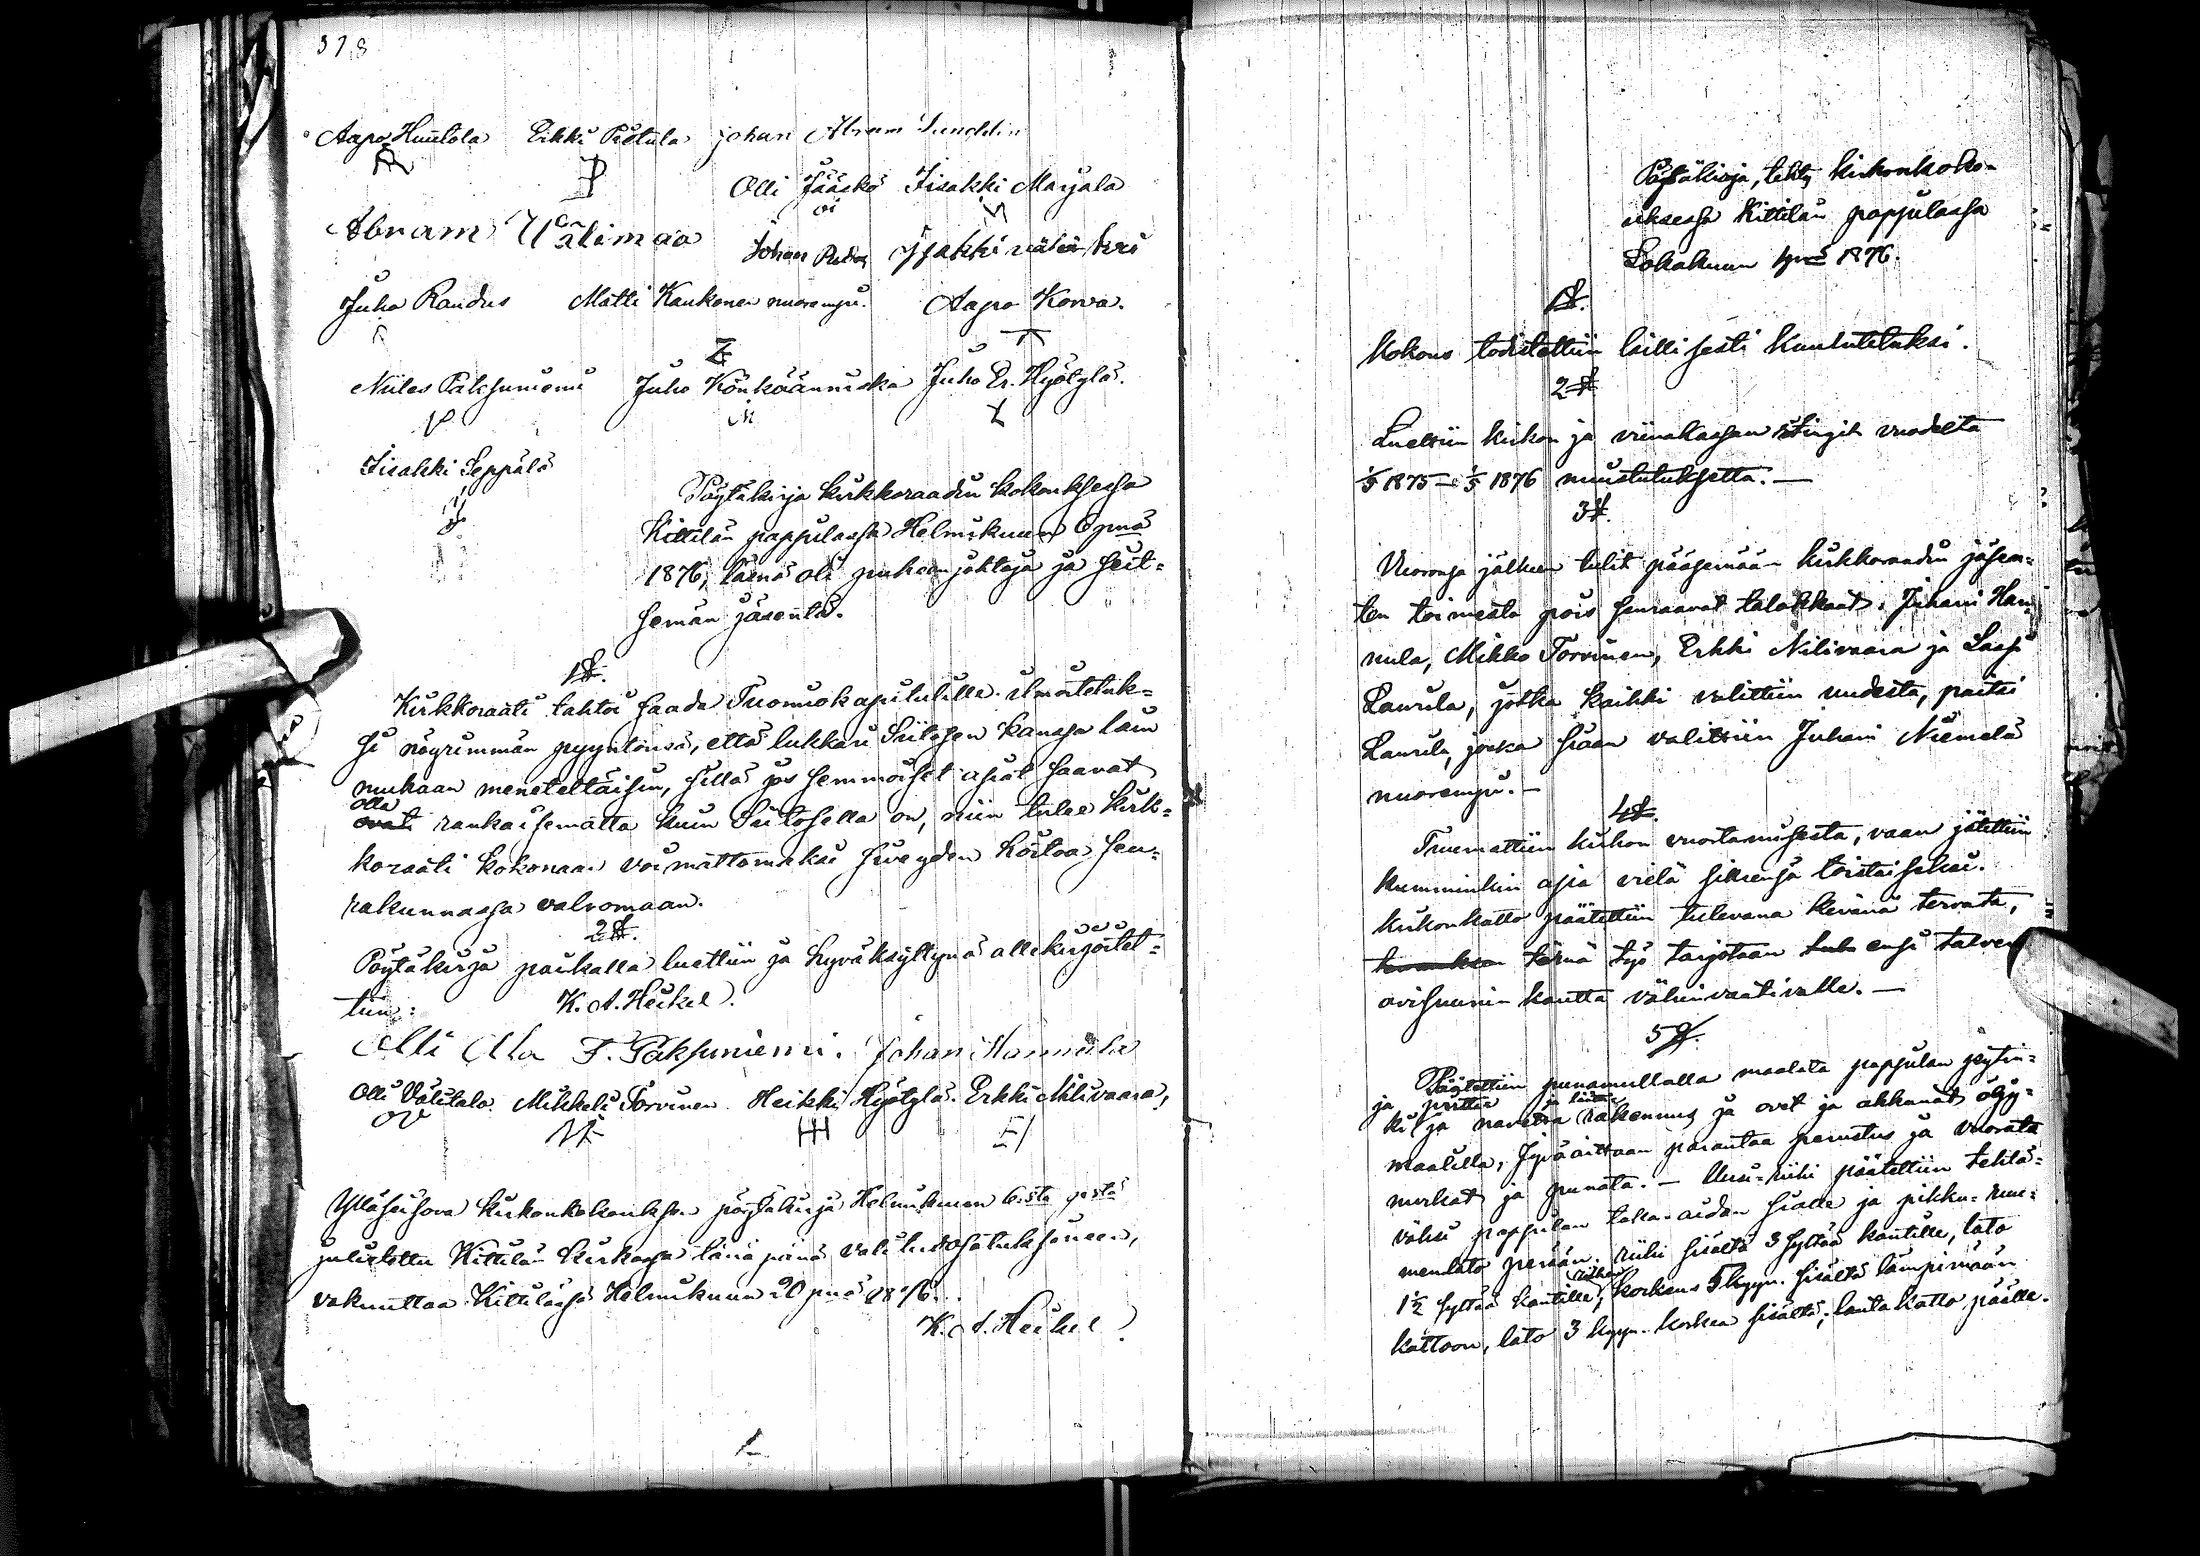 378
Aapo Huutola Erkki Pietula johan Abram Sundelin
Olli Jääskö Iisakki Marjala
Abram Wälimaa Johan Isakki
Juho Raudus Matti Kaukonen nuorempi. Aapo Korva.
Niiles Paksuniemi Juho Könkäänniska Juho Er. Hyötylä.
Iisakki Seppälä
Pöytäkirja kirkkoraadin kokouksessa
Kittilän pappilassa Helmikuun 6 pnä
1876, läsnä oli puheenjohtaja ja seit=
semän jäsentä.
1 §.
Kirkkoraati tahtoi saada Tuomiokapitulille ilmoitetuk=
si nöyrimmän pyyntönsä, että lukkari Siitosen kanssa lain
mukaan meneteltäisiin, sillä jos semmoiset asiat saavat
olla
ovat rankaisematta kuin Siitosella on, niin tulee kirk=
koraati kokonaan voimattomaksi siveyden hoitoa seu=
rakunnassa valvomaan.
2 §.
Pöytäkirja paikalla luettiin ja hyväksyttynä allekirjoitet=
tiin: K. A. Heikel.
Olli Ala F. Paksuniemi. Johan Hannula
Olli Välitalo Mikkeli Torvinen Heikki Hyötylä. Erkki Nilivaara,
OV HH E/
Ylläseisova kirkonkokouksen pöytäkirja Helmikuun 6:sta pstä
julistettu Kittilän kirkossa tänä päinä valitusosoituksineen,
vakuuttaa Kittilässä Helmikuun 20 pnä 1876.
K. A. Heikel
Pöytäkirja, tehty kirkonkoko=
uksessa Kittilän pappilassa
Lokakuun 1 pnä 1876.
1 §.
Kokous todistettiin laillisesti kuulutetuksi.
2 §
Luettiin kirkon ja viinakassan räkingit vuodelta
1/5 1875 – 1/5 1876 muistutuksetta. —
3 §.
Vuoronsa jälkeen tulit pääsemään kirkkoraadin jäsen=
ten toimesta pois seuraavat talokkaat: Juhani Han=
nula, Mikko Torvinen, Erkki Nilivaara ja Lassi
Laurila, jotka kaikki valittiin uudesta, paitsi
Laurila, jonka siaan valittiin Juhani Niemelä
nuorempi. —
4 §.
Tuumattiin kirkon vuoraamisesta, vaan jätettiin
kumminkin asia vielä siksensä toistaiseksi.
Kirkonkatto päätettiin tulevana kevänä tervata,
tämä työ tarjotaan ensi talven
ovisuunin kautta vähinvaativalle. —
5 §.
Päätettiin punamullalla maalata pappilan pytin=
ja
ki ja navetta rakennus ja ovet ja akkunat öljy=
maalilla, Jyväaittaan parantaa perustus ja vuorata
nurkat ja punata. — Uusi-riihi päätettiin tehtä=
väksi pappilan taka-aidan sialle ja pikku-ruu=
menlato perään. riihi sisältä 3 syltää kantille, lato
1½ syltää kantille, riihen korkeus 5 kyyn. sisältä lämpimään
kattoon, lato 3 kyyn. korkea sisältä; lautakatto päälle.